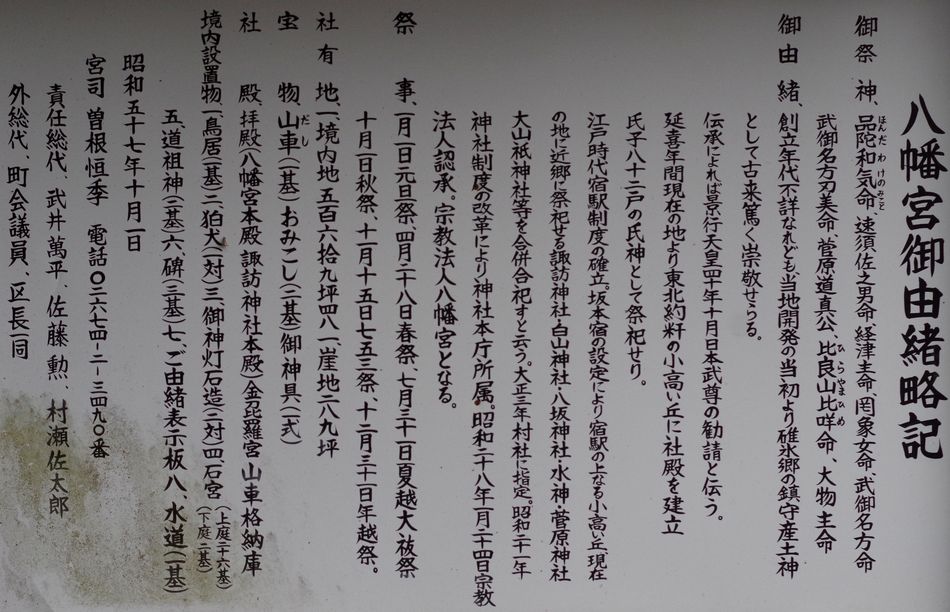 八幡宮御由緒略記
御祭神、品陀和気命、速須佐之男命 経津主命、罔象女命、武御名方命
ほんだわけのみこと
武御名方刀美命、菅原道真公、比良山比咩命、大物主命
ひらやまひめ
御由緒、創立年代不詳なれども、当地開発の当初より碓氷郷の鎮守産土神
として古来篤く崇敬せらる。
伝承によれば景行天皇四十年十月日本武尊の勧請と伝う。
延喜年間現在の地より東北約料の小高い丘に社殿を建立
氏子八十二戸の氏神として祭祀せり。
江戸時代宿駅制度の確立。坂本宿の設定により宿駅の上なる小高い丘、現在
の地に近郷に祭祀せる諏訪神社・白山神社・八坂神社・水神・菅原神社
大山祇神社等を合併合祀すと云う。大正三年村社に指定。昭和二十一年
神社制度の改革により神社本庁所属。昭和二十八年一月二十四日宗教
法人認承。宗教法人八幡宮となる。
祭事、一月一日元旦祭、四月二十八日春祭、七月三十一日夏越大祓祭
十月一日秋祭、十一月十五日七五三祭、十二月三十一日年越祭。
社有地、一、境内地五百六拾九坪四八一、崖地二八九坪
宝物、山車(一基)おみこし(二基)御神具(一式)
だし
社殿、拝殿(八幡宮本殿 諏訪神社本殿)金毘羅宮 山車格納庫
境内設置物、一鳥居(一基)二、狛犬(一対)三、御神灯石造(二対)四石宮(上庭二十六基)(下庭二基)
五、道祖神(三基)六、碑(三基)七、ご由緒表示板 八、水道(二基)
昭和五十七年十月一日
宮司 曽根恒季 電話〇二六七四-二-三四九〇番
責任総代、武井萬平、佐藤勲、村瀬佐太郎
外総代、町会議員、区長一同